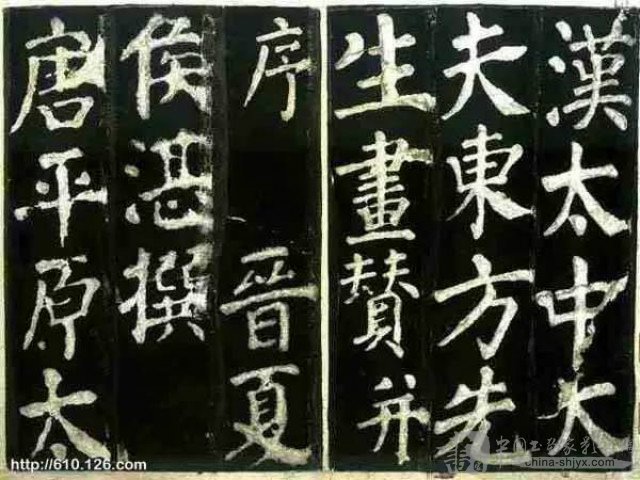 漢太中大
夫東方先
生畫赞并
序 晉夏
侯湛撰
唐平原太
http://610.126.com
china-shjyx.com